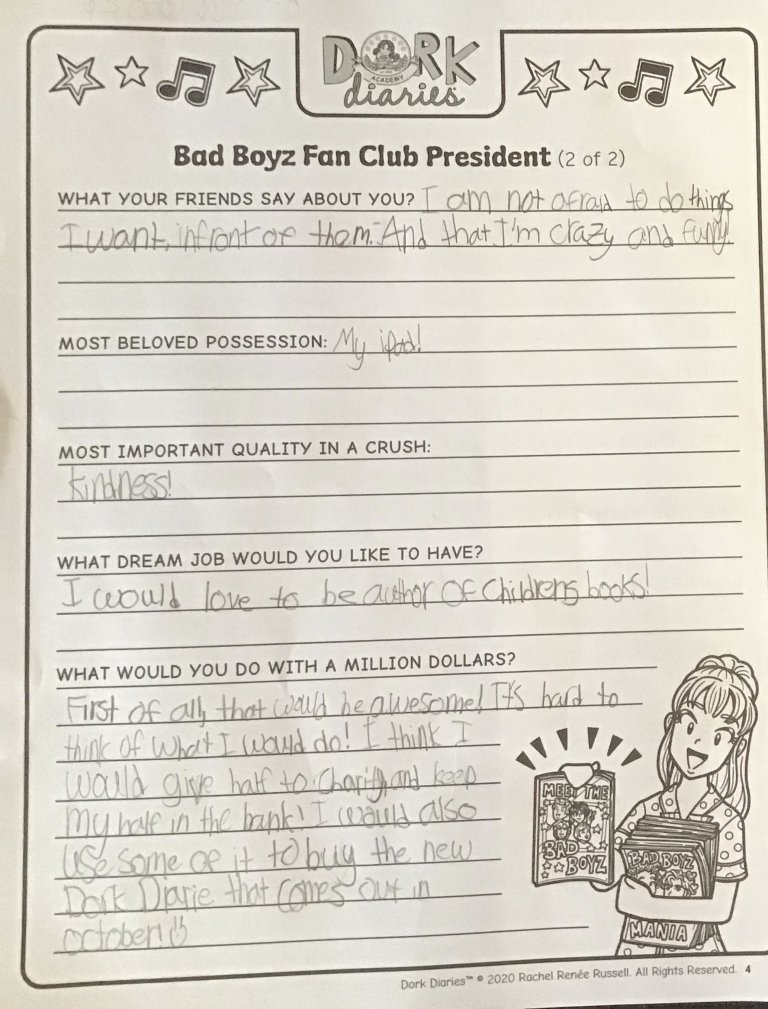 DORK
ACADEMY
diaries
Bad Boyz Fan Club President (2 of 2)
WHAT YOUR FRIENDS SAY ABOUT YOU? I am not afraid to do things
I want, infront of them. And that I'm crazy and funny!
MOST BELOVED POSSESSION: My ipad!
MOST IMPORTANT QUALITY IN A CRUSH:
kindness!
WHAT DREAM JOB WOULD YOU LIKE TO HAVE?
I would love to be author of Childrens books!
WHAT WOULD YOU DO WITH A MILLION DOLLARS?
First of all, that would be awesome! It's hard to
think of what I would do! I think I
would give half to Charity, and keep
My half in the bank! I would also
use some of it to buy the new
Dork Diarie that comes out in
october!
MEET THE
BAD
BOYZ
BAD BOYZ
MANIA
Dork Diaries™ © 2020 Rachel Renée Russell. All Rights Reserved. 4